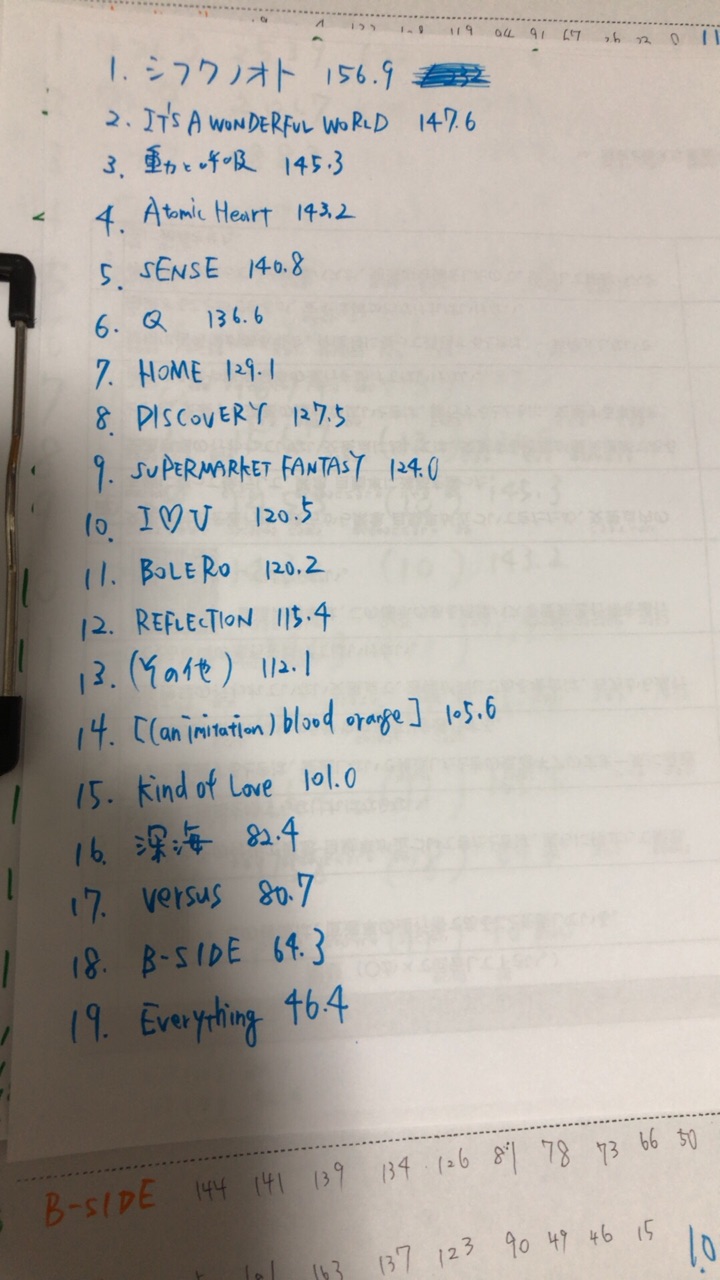 119 94 91 67 26 22 0 11
1. シフクノオト 156.9
2. IT'S A WONDERFUL WORLD 147.6
3. 重力と呼吸 145.3
4. Atomic Heart 143.2
5. SENSE 140.8
6. Q 136.6
7. HOME 129.1
8. DISCOVERY 127.5
9. SUPERMARKET FANTASY 124.0
10. I♡U 120.5
11. BOLERO 120.2
12. REFLECTION 115.4
13. (その他) 112.1
14. [(an imitation) blood orange] 105.6
15. Kind of Love 101.0
16. 深海 82.4
17. versus 80.7
18. B-SIDE 64.3
19. Everything 46.4
B-SIDE 144 141 139 134 126 81 78 73 66 50
163 137 123 90 49 46 15 10